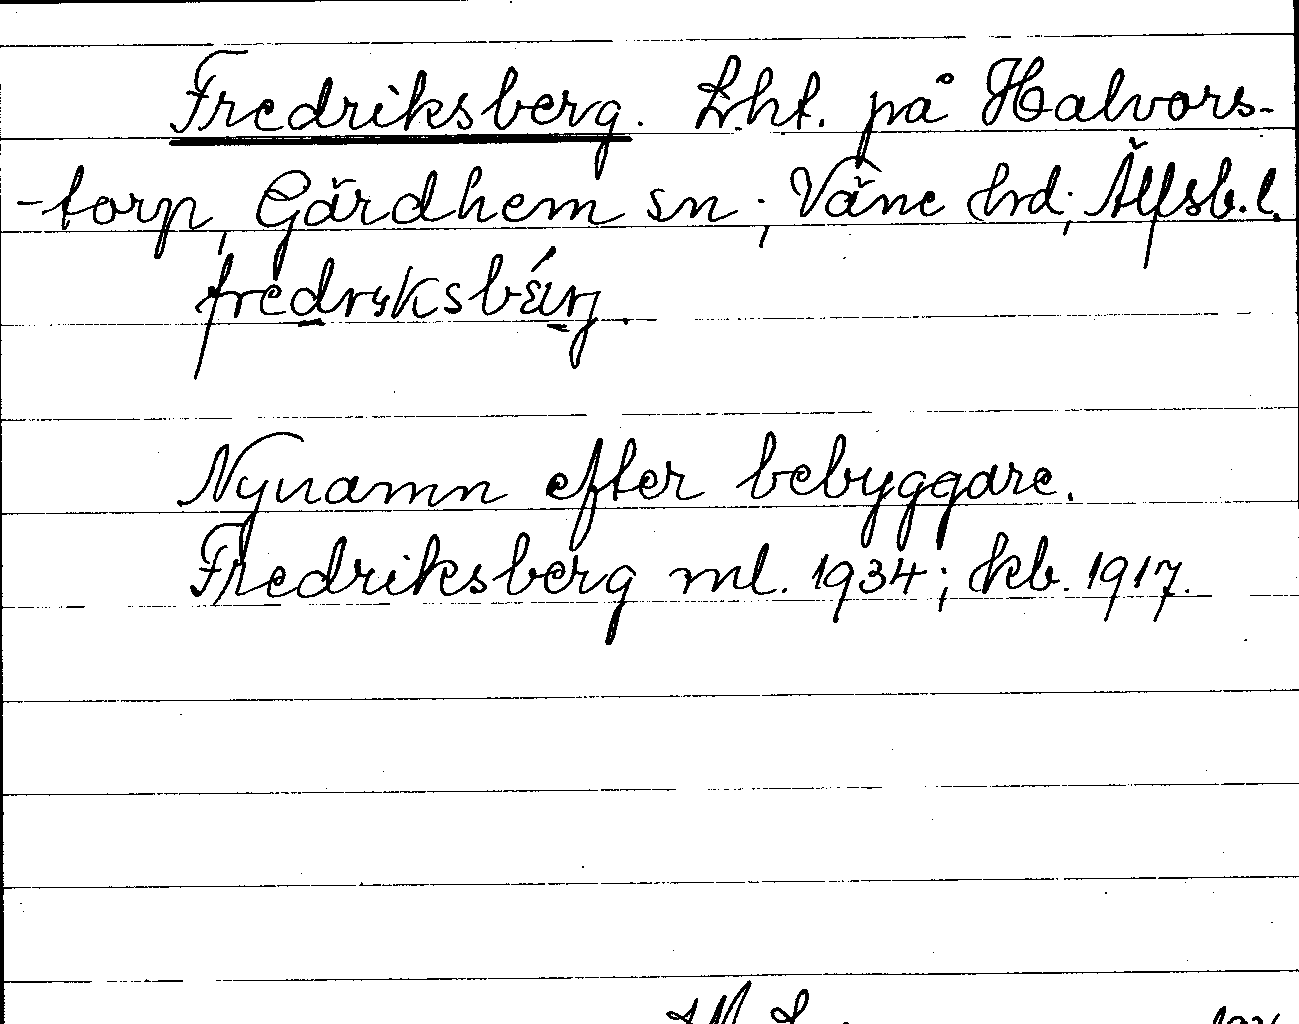 Fredriksberg. Lht. på Halvors-
-torp, Gärdhem sn; Väne hd; Älfsb. l.
Nynamn efter bebyggare.
Fredriksberg ml. 1934; kb. 1917.